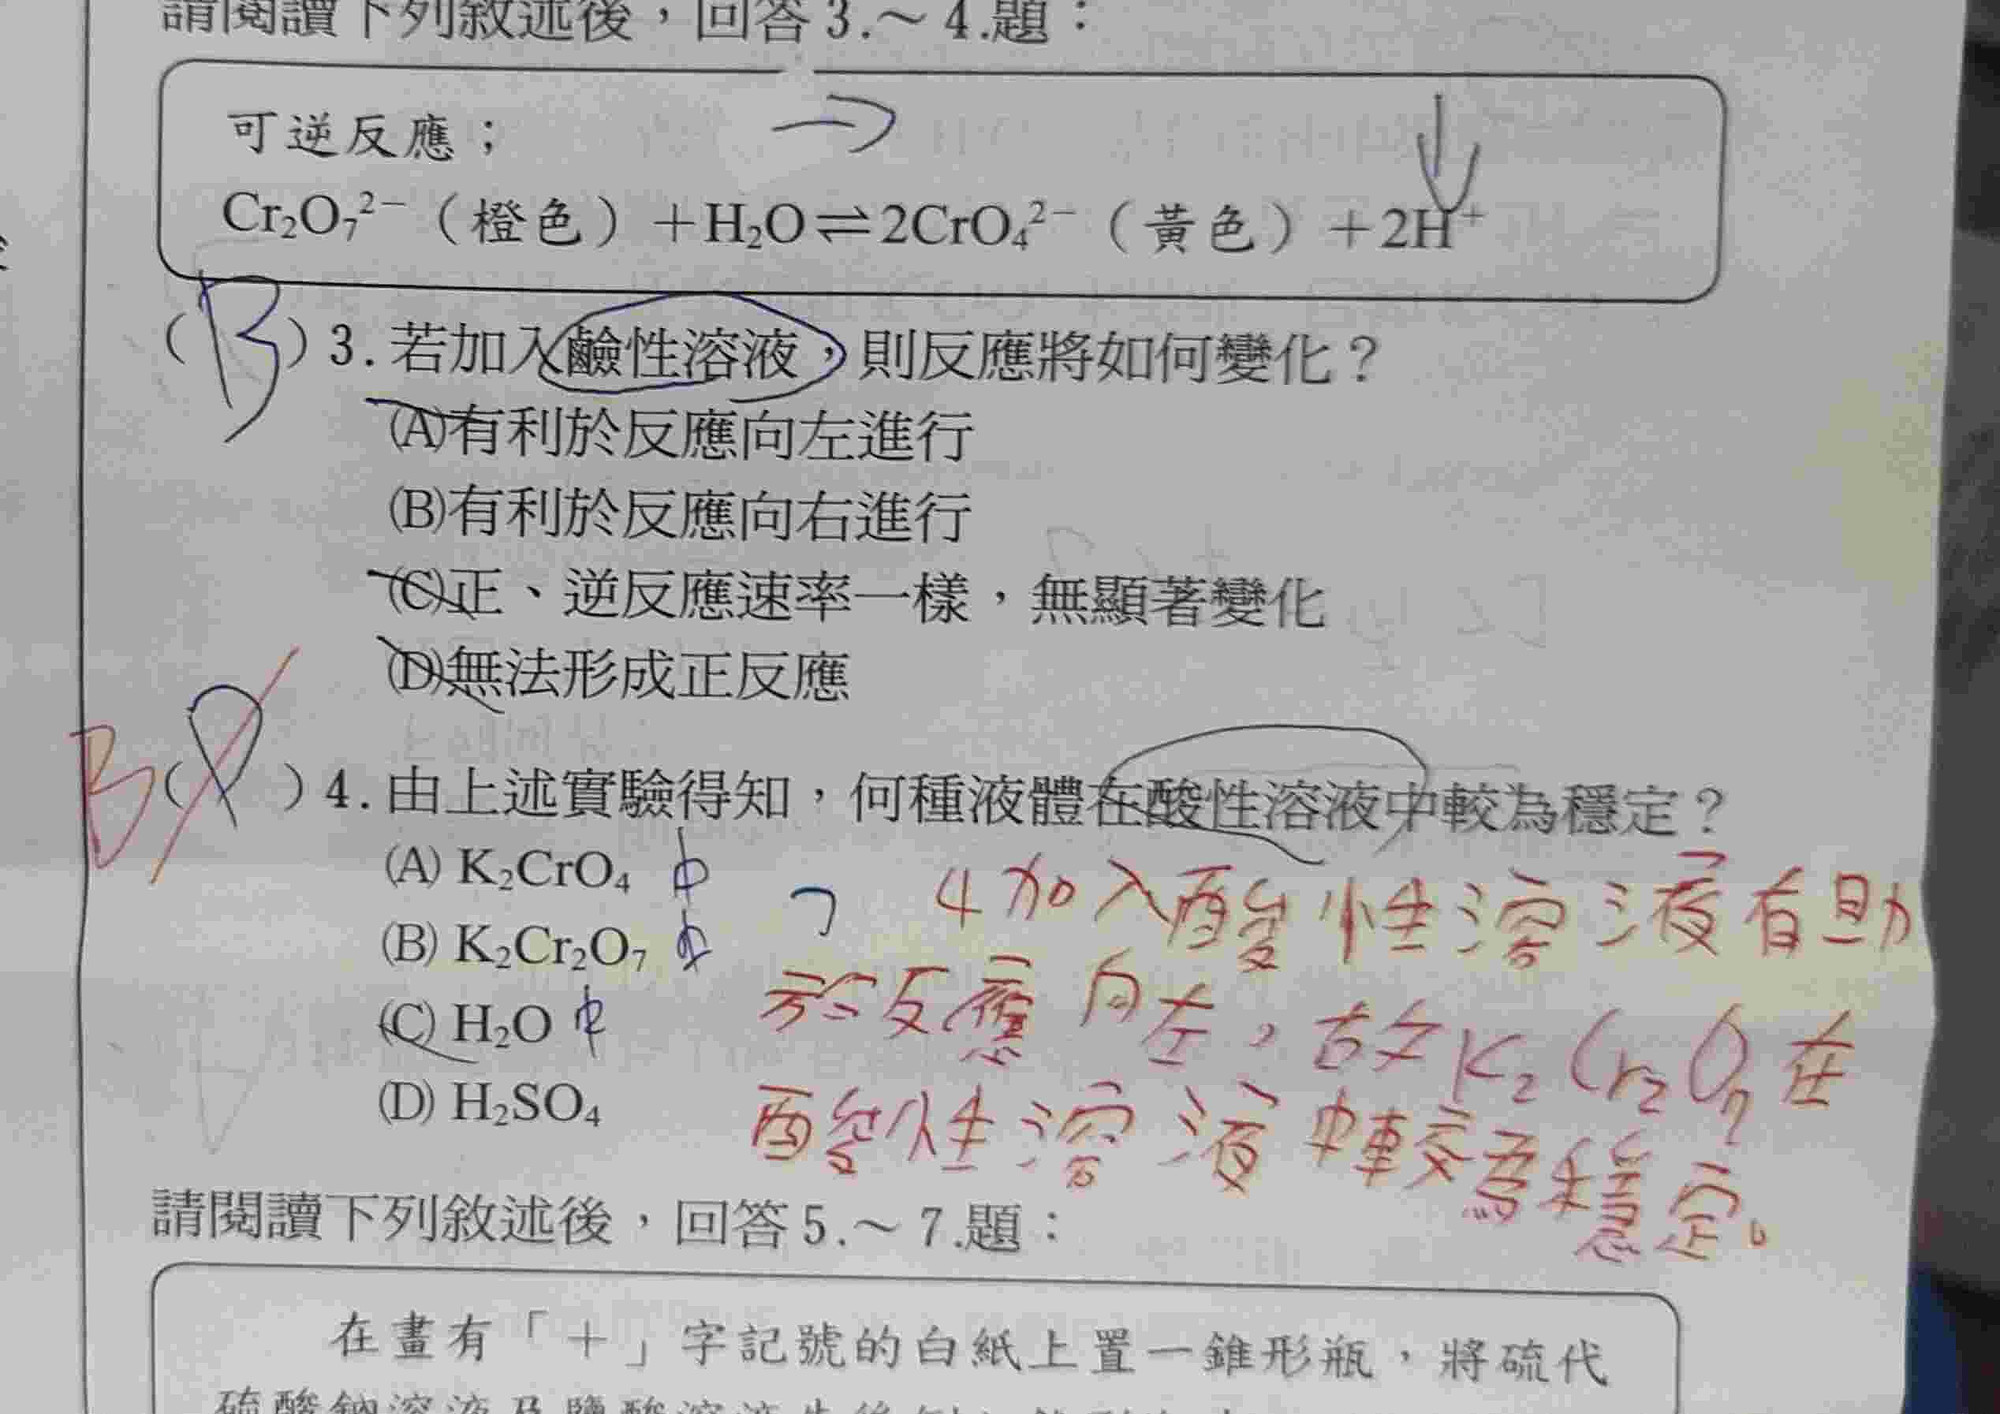 請閱讀下列敘述後，回答3.～4.題：
可逆反應；
Cr₂O₇²⁻（橙色）＋H₂O⇌2CrO₄²⁻（黃色）＋2H⁺
（B）3.若加入鹼性溶液，則反應將如何變化？
(A)有利於反應向左進行
(B)有利於反應向右進行
(C)正、逆反應速率一樣，無顯著變化
(D)無法形成正反應
B（）4.由上述實驗得知，何種液體在酸性溶液中較為穩定？
(A) K₂CrO₄ 中
(B) K₂Cr₂O₇
(C) H₂O 中
(D) H₂SO₄
4加入酸性溶液有助
於反應向左，故K₂Cr₂O₇在
酸性溶液中較為穩定。
請閱讀下列敘述後，回答5.～7.題：
在畫有「＋」字記號的白紙上置一錐形瓶，將硫代
硫酸鈉溶液及鹽酸溶液